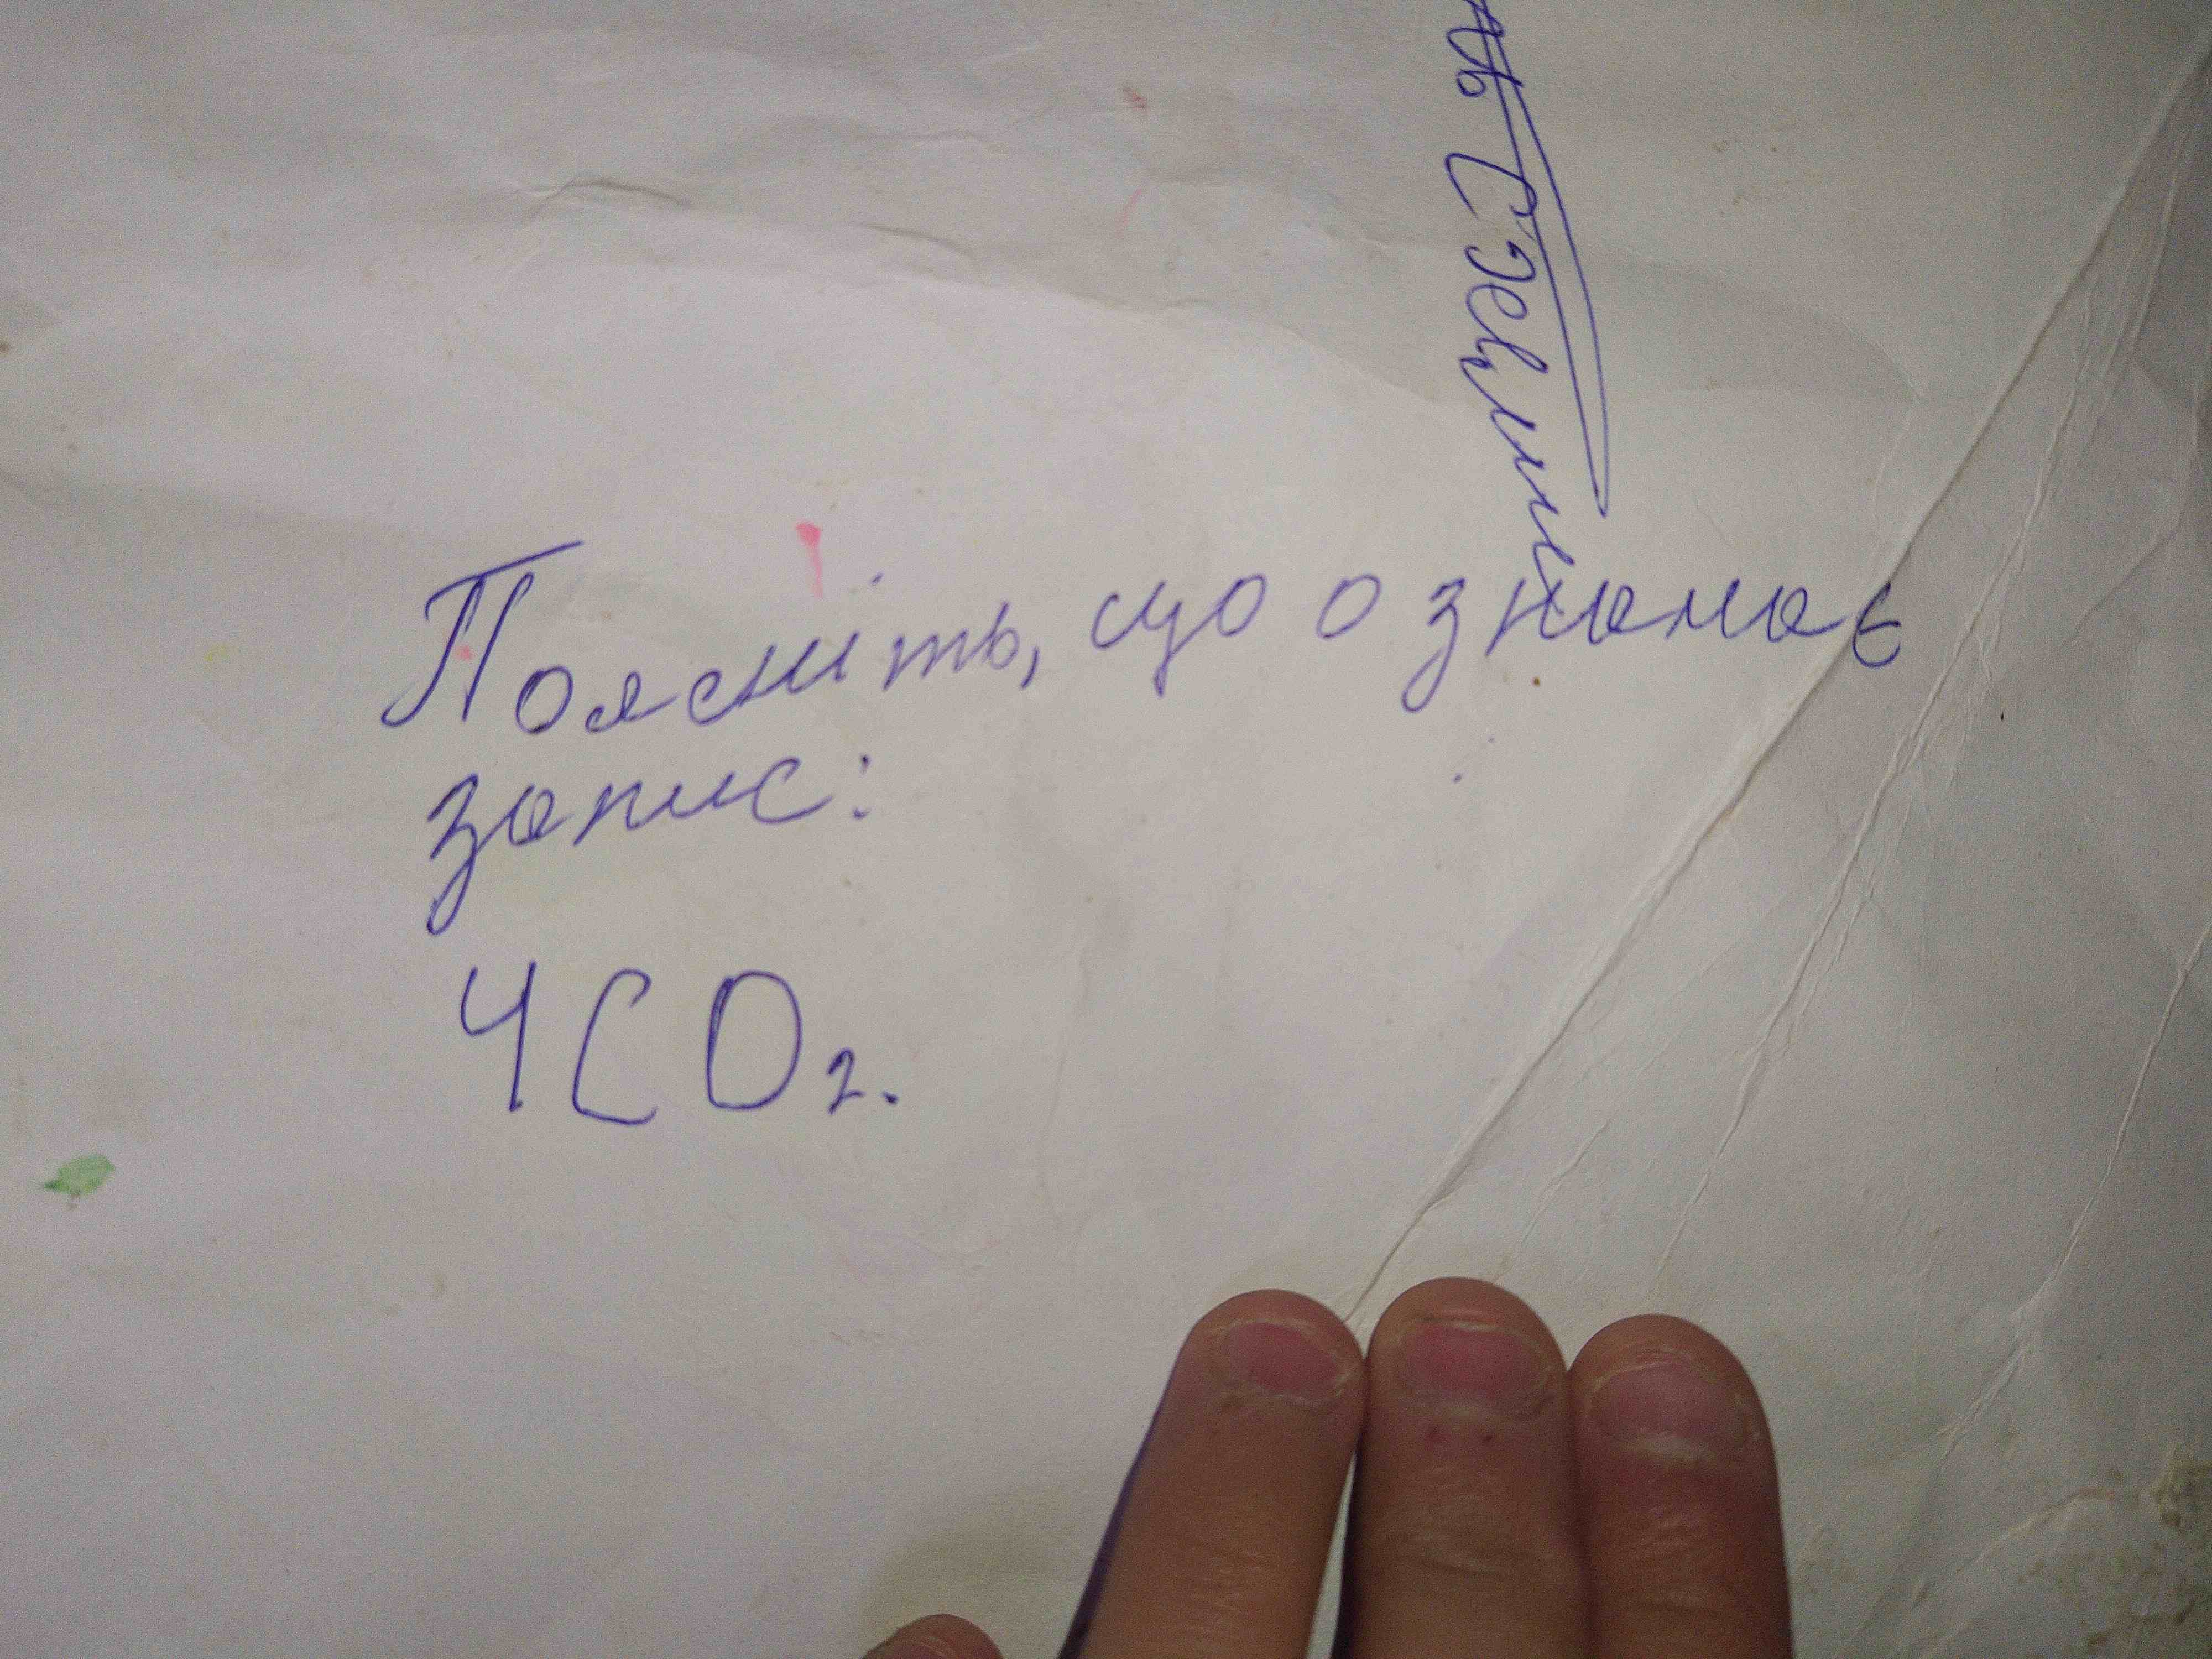 Поясніть, що ознамає
запис:
4CO₂.